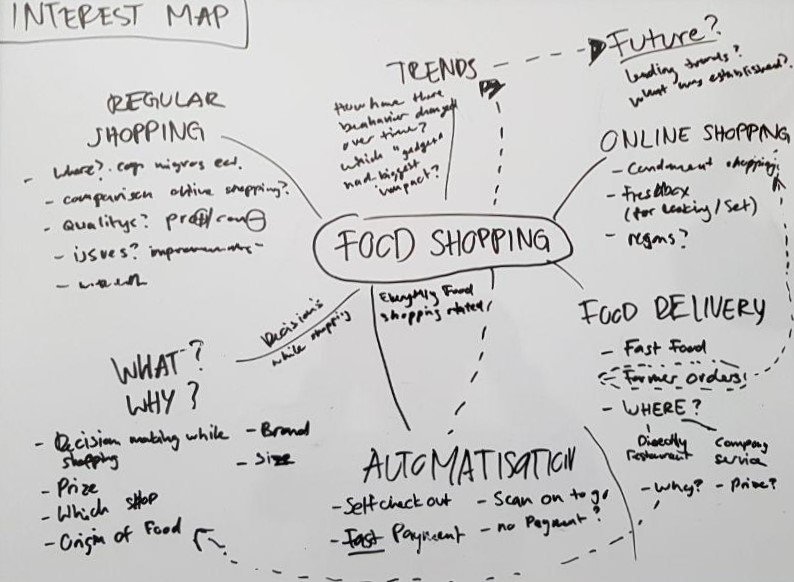 INTEREST MAP
TRENDS
How have there
beahavior changed
over time?
which "gadget"
had biggest
impact?
Future?
leading trends?
what was established?
REGULAR
SHOPPING
- Where? coop migros ect.
- comparisen online shopping?
- Qualitys? pro⊕/con⊖
- issues? improvements
ONLINE SHOPPING
- shopping
- Freshbox
(for /Set)
- regons?
FOOD SHOPPING
Everything Food
shopping related!
Decisions
while shopping
FOOD DELIVERY
- Fast Food
- Farmer orders!
- WHERE?
Directly
restaurant
Company
service
- Why?
- Prize?
WHAT?
WHY?
- Decision making while
shopping
- Prize
- Which shop
- Origin of Food
- Brand
- Size
AUTOMATISATION
- Self check out
- Fast Payment
- Scan on to go
- no Payment?